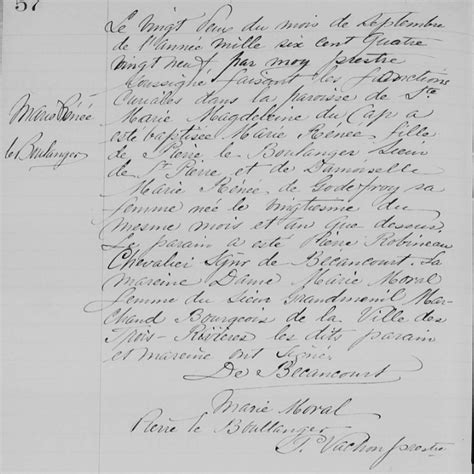 57
Le vingt deux du mois de Septembre
de l'année mille six cent quatre
vingt neuf par moy prestre
soussigné faisant les fonctions
Curiales dans la paroisse de Ste
Marie Magdeleine du Cap a
esté baptisée Marie Renée fille
de Pierre le Boulanger Sieur
de St Pierre et de Damoiselle
Marie Renée de Godefroy sa
femme née le vingtiesme du
mesme mois et an que dessus.
Le parain a esté Pierre Robineau
Chevalier Sgnr de Becancourt. la
mareine Dame Marie Moral
femme du Sieur Grandmenil Mar-
chand Bourgeois de la Ville des
Trois-Rivières les dits parain
et mareine ont signé.
De Becancourt
Marie Moral
Pierre le Boullanger
P. Vachon prestre
Marie Renée
le Boulanger